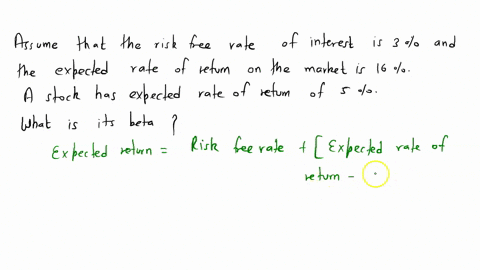 Assume that the risk free rate of interest is 3% and
the expected rate of return on the market is 16%.
A stock has expected rate of return of 5%.
What is its beta ?
Expected return = Risk free rate + [Expected rate of
return -